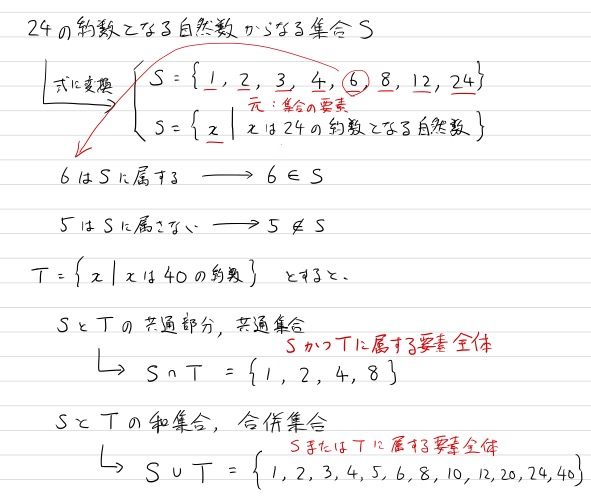 24の約数となる自然数からなる集合 S
式に変換
S = {1, 2, 3, 4, 6, 8, 12, 24}
元：集合の要素
S = {x | xは24の約数となる自然数}
6はSに属する → 6 ∈ S
5はSに属さない → 5 ∉ S
T = {x | xは40の約数} とすると、
SとTの共通部分, 共通集合
SかつTに属する要素全体
S ∩ T = {1, 2, 4, 8}
SとTの和集合, 合併集合
SまたはTに属する要素全体
S ∪ T = {1, 2, 3, 4, 5, 6, 8, 10, 12, 20, 24, 40}